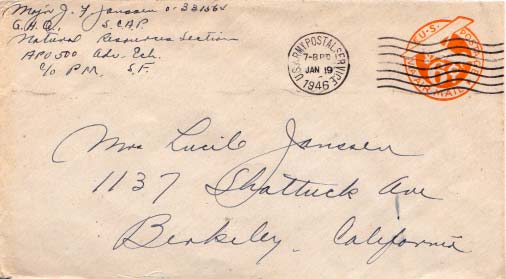 Major J. F Janssen O-331564
G.H.Q. S.C.A.P.
Natural Resources Section
APO 500 Adv. Ech.
C/O P.M. S.F.
U.S. ARMY POSTAL SERVICE
7-8 PM
JAN 19
1946
U.S. POSTAGE
6¢
VIA AIR MAIL
Mrs Lucile Janssen
1137 Shattuck Ave
Berkeley, California